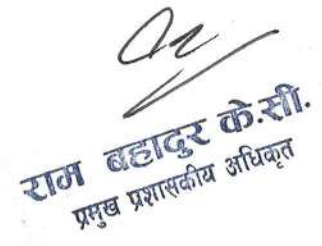 राम बहादुर के.सी.
प्रमुख प्रशासकीय अधिकृत